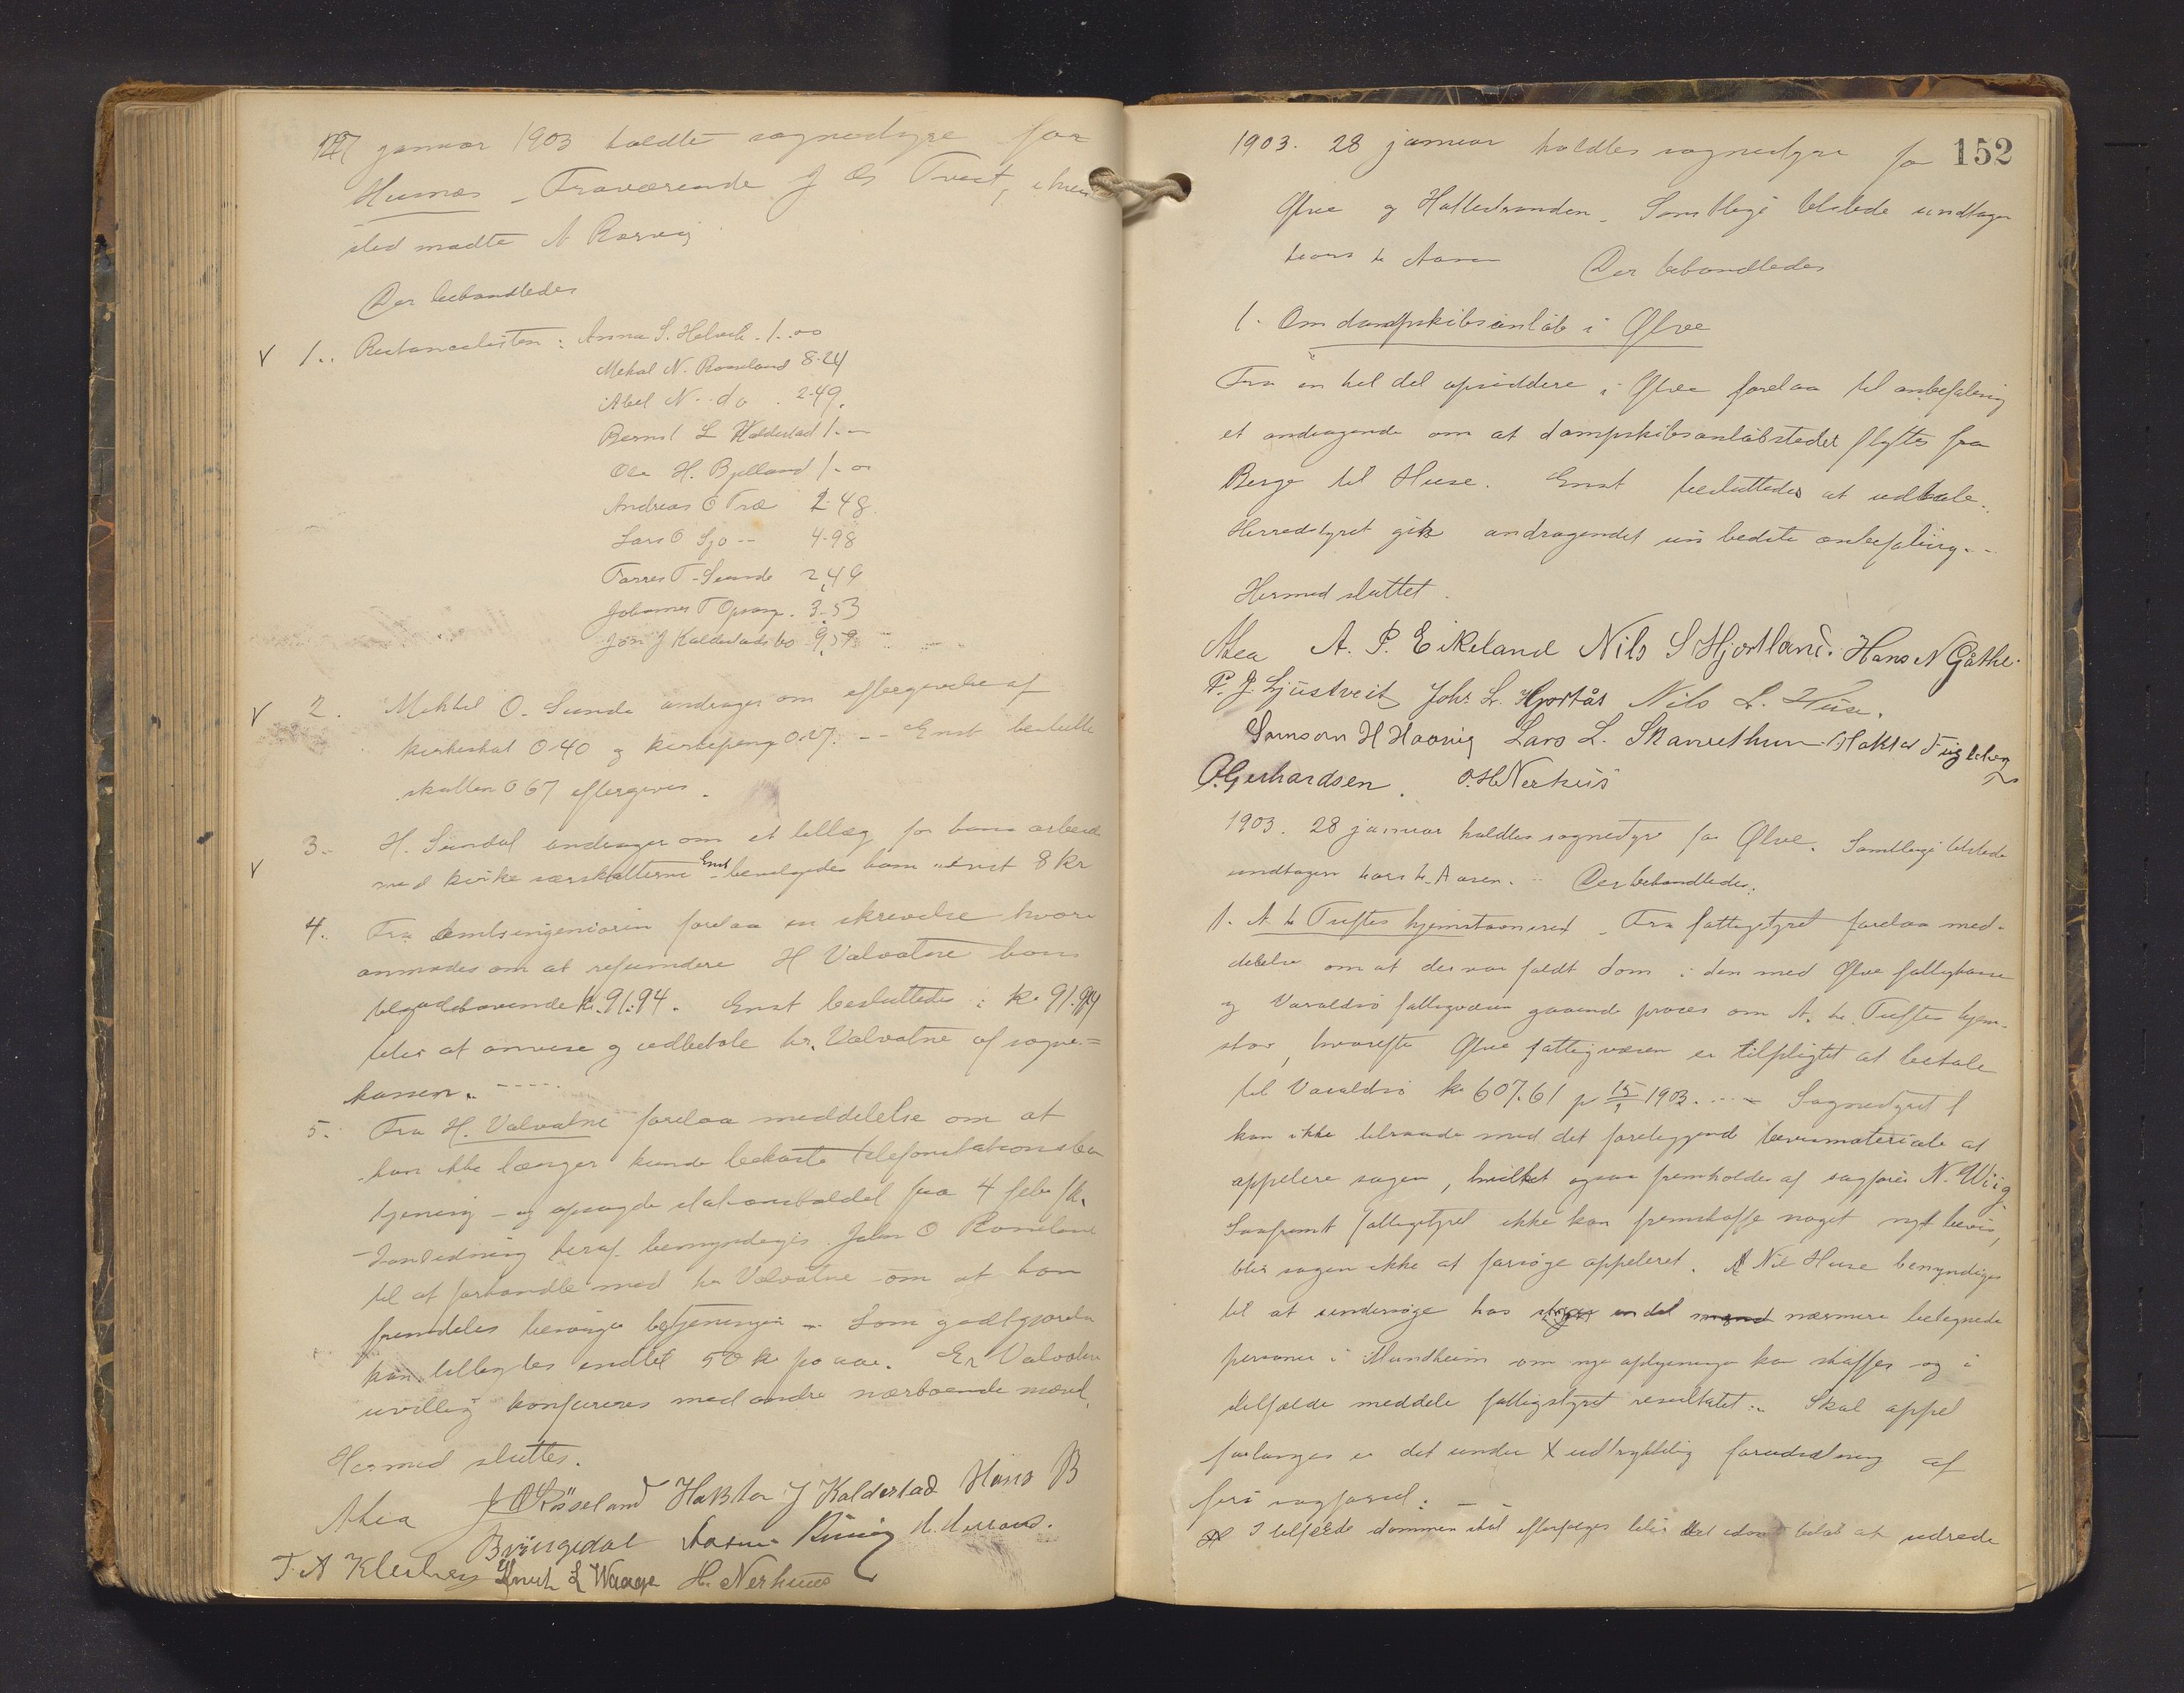 januar 1903 holdtes sognestyre for
Husnes - Fraværende J Os Tveit, i hvis
sted mødte A Rørvig
Der behandledes
1.. Restancelisten: Anna S. Helvik. 1.00
Mekal N. Røseland 8-24
Abel N.. do . 2-49.
Bernt L Kaldestad 1.-
Ole H. Bjelland 1.00
Andreas O Træ 2-48
Lars O Sjo -- 4-98
Torres T. Sunde 2,49
Johannes T Opsang. 3-53
Jon J Kaldestads bo 9,59
2. Mektel O. Sunde andrager om eftergivelse af
kirkeskat 0.40 og kirkepeng 0.27. -- Enst besluttet
skatten 0 67 eftergives.
3.. H. Sundal andrager om et tillæg for hans arbeide
med kirke særskatterne Enst bevilgedes ham 8 kr
4. Fra Amtsingeniøren forelaa en skrivelse hvori
anmodes om at refundere H Valvatne hans
tilgodehavende kr. 91.94. Enst besluttedes: kr 91.94
blir at anvise og udbetale hr. Valvatne af sogne=
kassen. -----
5. Fra H. Valvatne forelaa meddelelse om at
han ikke længer kunde bekoste telefonstationsbe
tjening - og opsagde stationsholdet fra 4 febr
I anledning heraf bemyndiges John O Røseland
til at forhandle med hr Valvatne om at han
fremdeles besørger betjeningen - Som godtgjørelse
kan tillegges indtil 50 kr pr aar. Er Valvatne
uvillig konfereres med andre nærboende mænd.
Hermed sluttes.
J O Røseland Hakton J Kaldestad Hans B
Bringedal
T. A Kleiberg Knut L Waage H. Nerhuus
152
1903. 28 januar holdtes sognestyre for
Ølve og Hatlestranden. Samtlige tilstede undtagen
Der behandledes
1. Om dampskibsanløb i Ølve
Fra en hel del opsiddere i Ølve forelaa til anbefaling
et andragende om at dampskibsanløbstedet flyttes fra
Berge til Huse. Enst besluttedes at udtale.
Herredstyret gik andragendet i
hedste anbefaling. -
Hermed sluttet.
A. P. Eikeland Nils S Hjortland. Hans N Gåthe.
P. J. Ljustveit Johs L. Hjortås Nils L. Huse.
Samson H Haavig Lars L. Skarvethun Haktor Fuglebe
O. Gerhardsen. O. H. Nerhus
1903. 28 januar holdtes sognestyre for Ølve. Samtlige tilstede
undtagen Aasen. - Der behandledes:
1. A. Tuftes hjemstavnsret. Fra fattigstyret forelaa med-
delelse om at der var faldt dom i den med Ølve fattigkasse
og Varaldsø fattigvæsen gaaende proces om A. Tuftes hjem-
stav, hvorefter Ølve fattigvæsen er tilpligtet at betale
til Varaldsø kr 607.61 pr 15/1 1903. ... - Sognestyret
kan ikke tilraade med det foreliggende bevismateriale at
appelere sagen, hvilket ogsaa fremholdes af sagfører N. Wiig
Saafremt fattigstyret ikke kan fremskaffe noget nyt bevis,
blir sagen ikke at forsøge appeleret. Nils Huse bemyndiges
til at undersøge hos nærmere betegnede
personer i Mundheim om nye oplysninger kan skaffes og i
tilfælde meddele fattigstyret resultatet: Skal appel
forlanges er det under udtrykkelig forudsætning af
fri sagførsel.
I tilfælde dommen skal efterfølges blir det idømte beløb at udrede